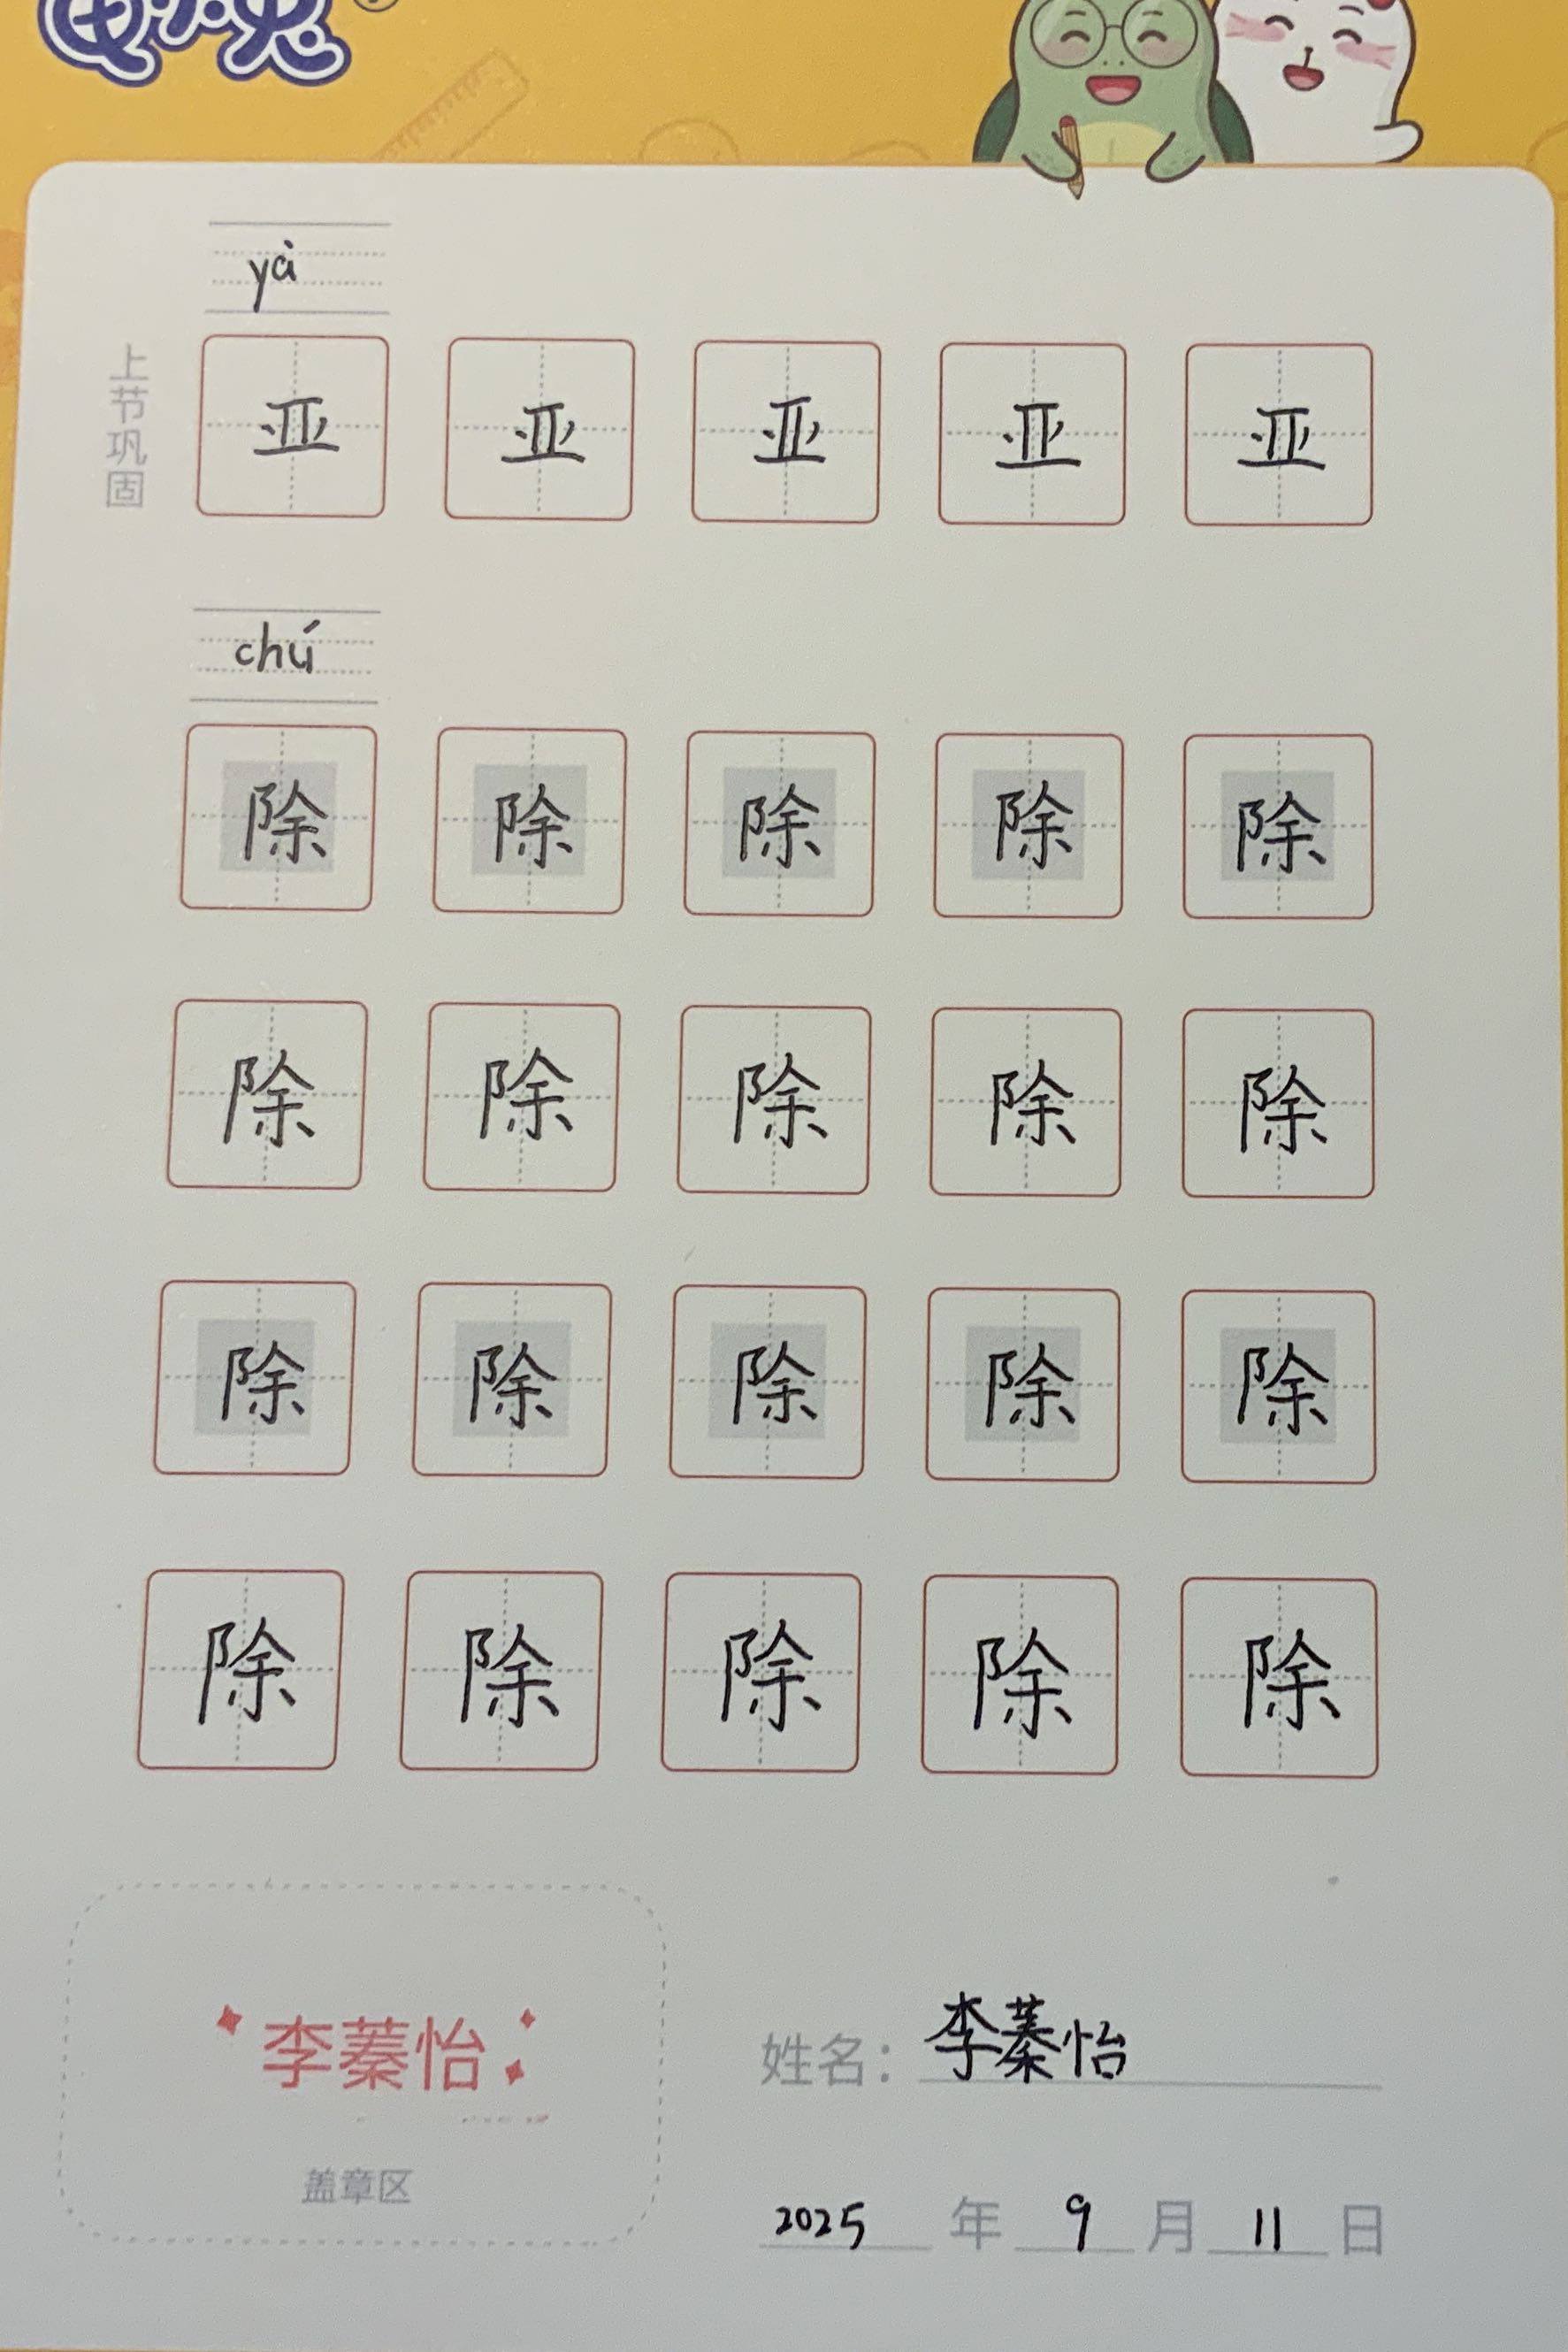 yà
上节巩固
亚 亚 亚 亚 亚
chú
除 除 除 除 除
除 除 除 除 除
除 除 除 除 除
除 除 除 除 除
李蓁怡
盖章区
姓名：李蓁怡
2025 年 9 月 11 日